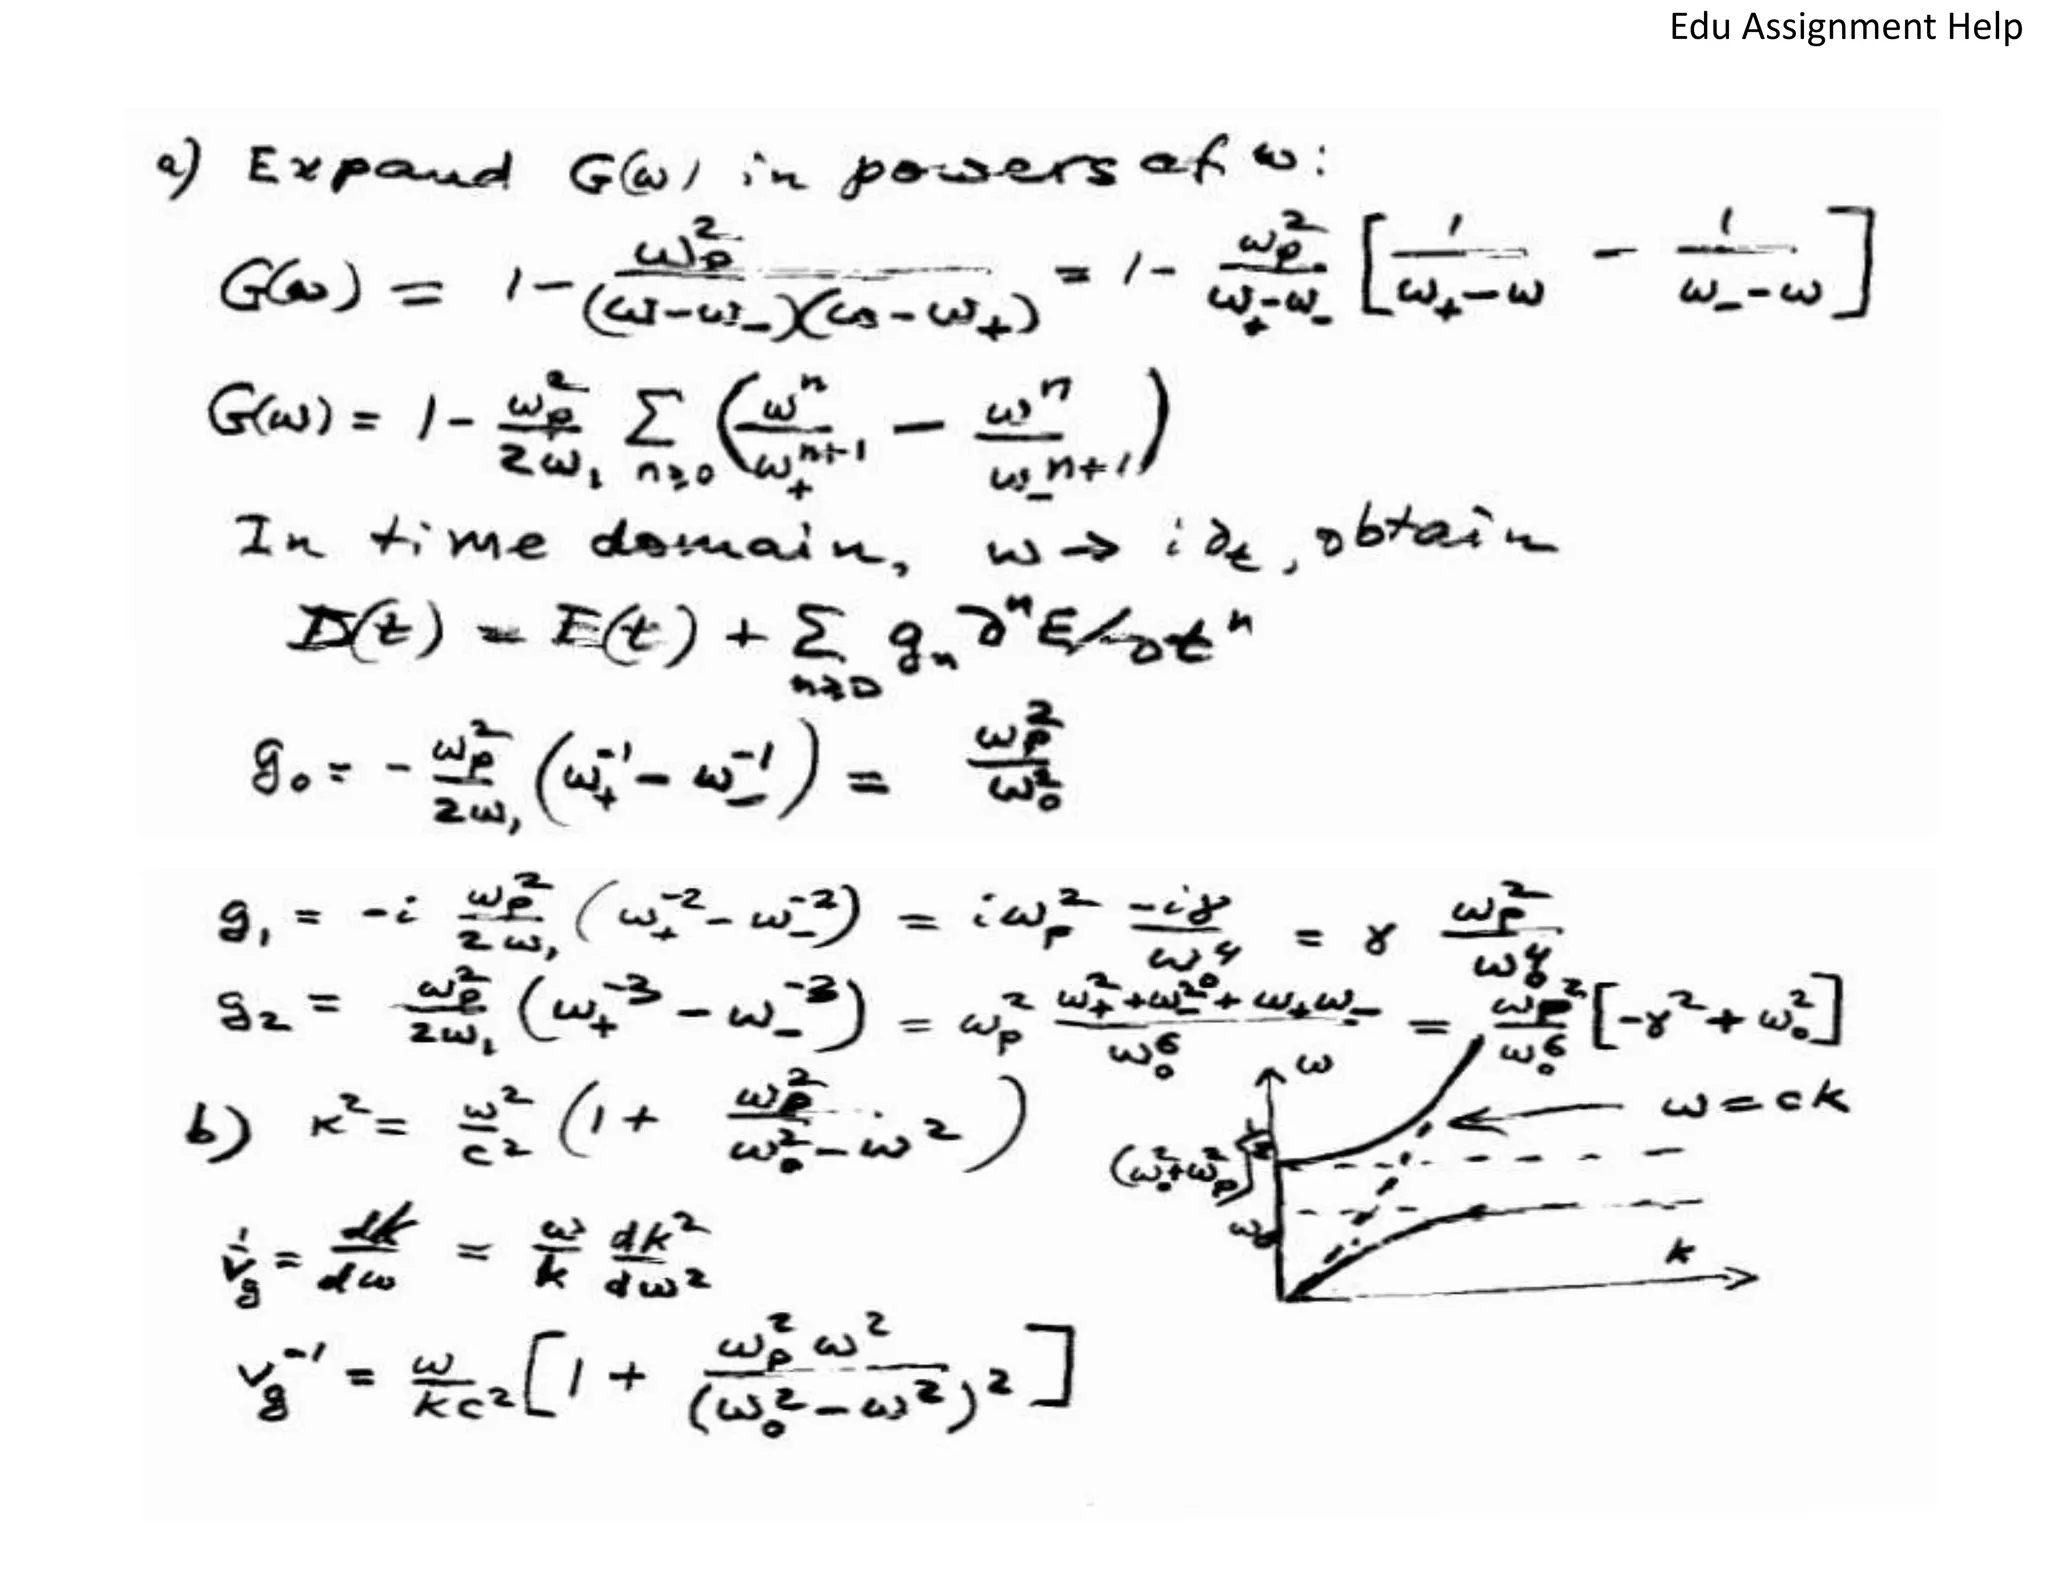 Edu Assignment Help
a) Expand G(ω) in powers of ω:
G(ω) = 1 - ω_p^2 / (ω-ω_-)(ω-ω_+) = 1 - ω_p^2 / (ω_+-ω_-) [ 1/(ω_+-ω) - 1/(ω_--ω) ]
G(ω) = 1 - ω_p^2/2ω_1 Σ_{n≥0} ( ω^n/ω_+^{n+1} - ω^n/ω_-^{n+1} )
In time domain, ω → i∂_t, obtain
D(t) = E(t) + Σ_{n≥0} g_n ∂^n E/∂t^n
g_0 = - ω_p^2/2ω_1 (ω_+^{-1} - ω_-^{-1}) = ω_p^2/ω_0^2
g_1 = -i ω_p^2/2ω_1 (ω_+^{-2} - ω_-^{-2}) = iω_p^2 -iγ/ω_0^4 = γ ω_p^2/ω_0^4
g_2 = ω_p^2/2ω_1 (ω_+^{-3} - ω_-^{-3}) = ω_p^2 (ω_+^2+ω_-^2+ω_+ω_-)/ω_0^6 = ω_p^2/ω_0^6 [-γ^2+ω_0^2]
b) k^2 = ω^2/c^2 (1 + ω_p^2/(ω_0^2-ω^2))
1/v_g = dk/dω = ω/k dk^2/dω^2
v_g^{-1} = ω/kc^2 [1 + ω_p^2 ω^2/(ω_0^2-ω^2)^2]
ω
ω = ck
(ω_0^2+ω_p^2)^{1/2}
ω_0
k